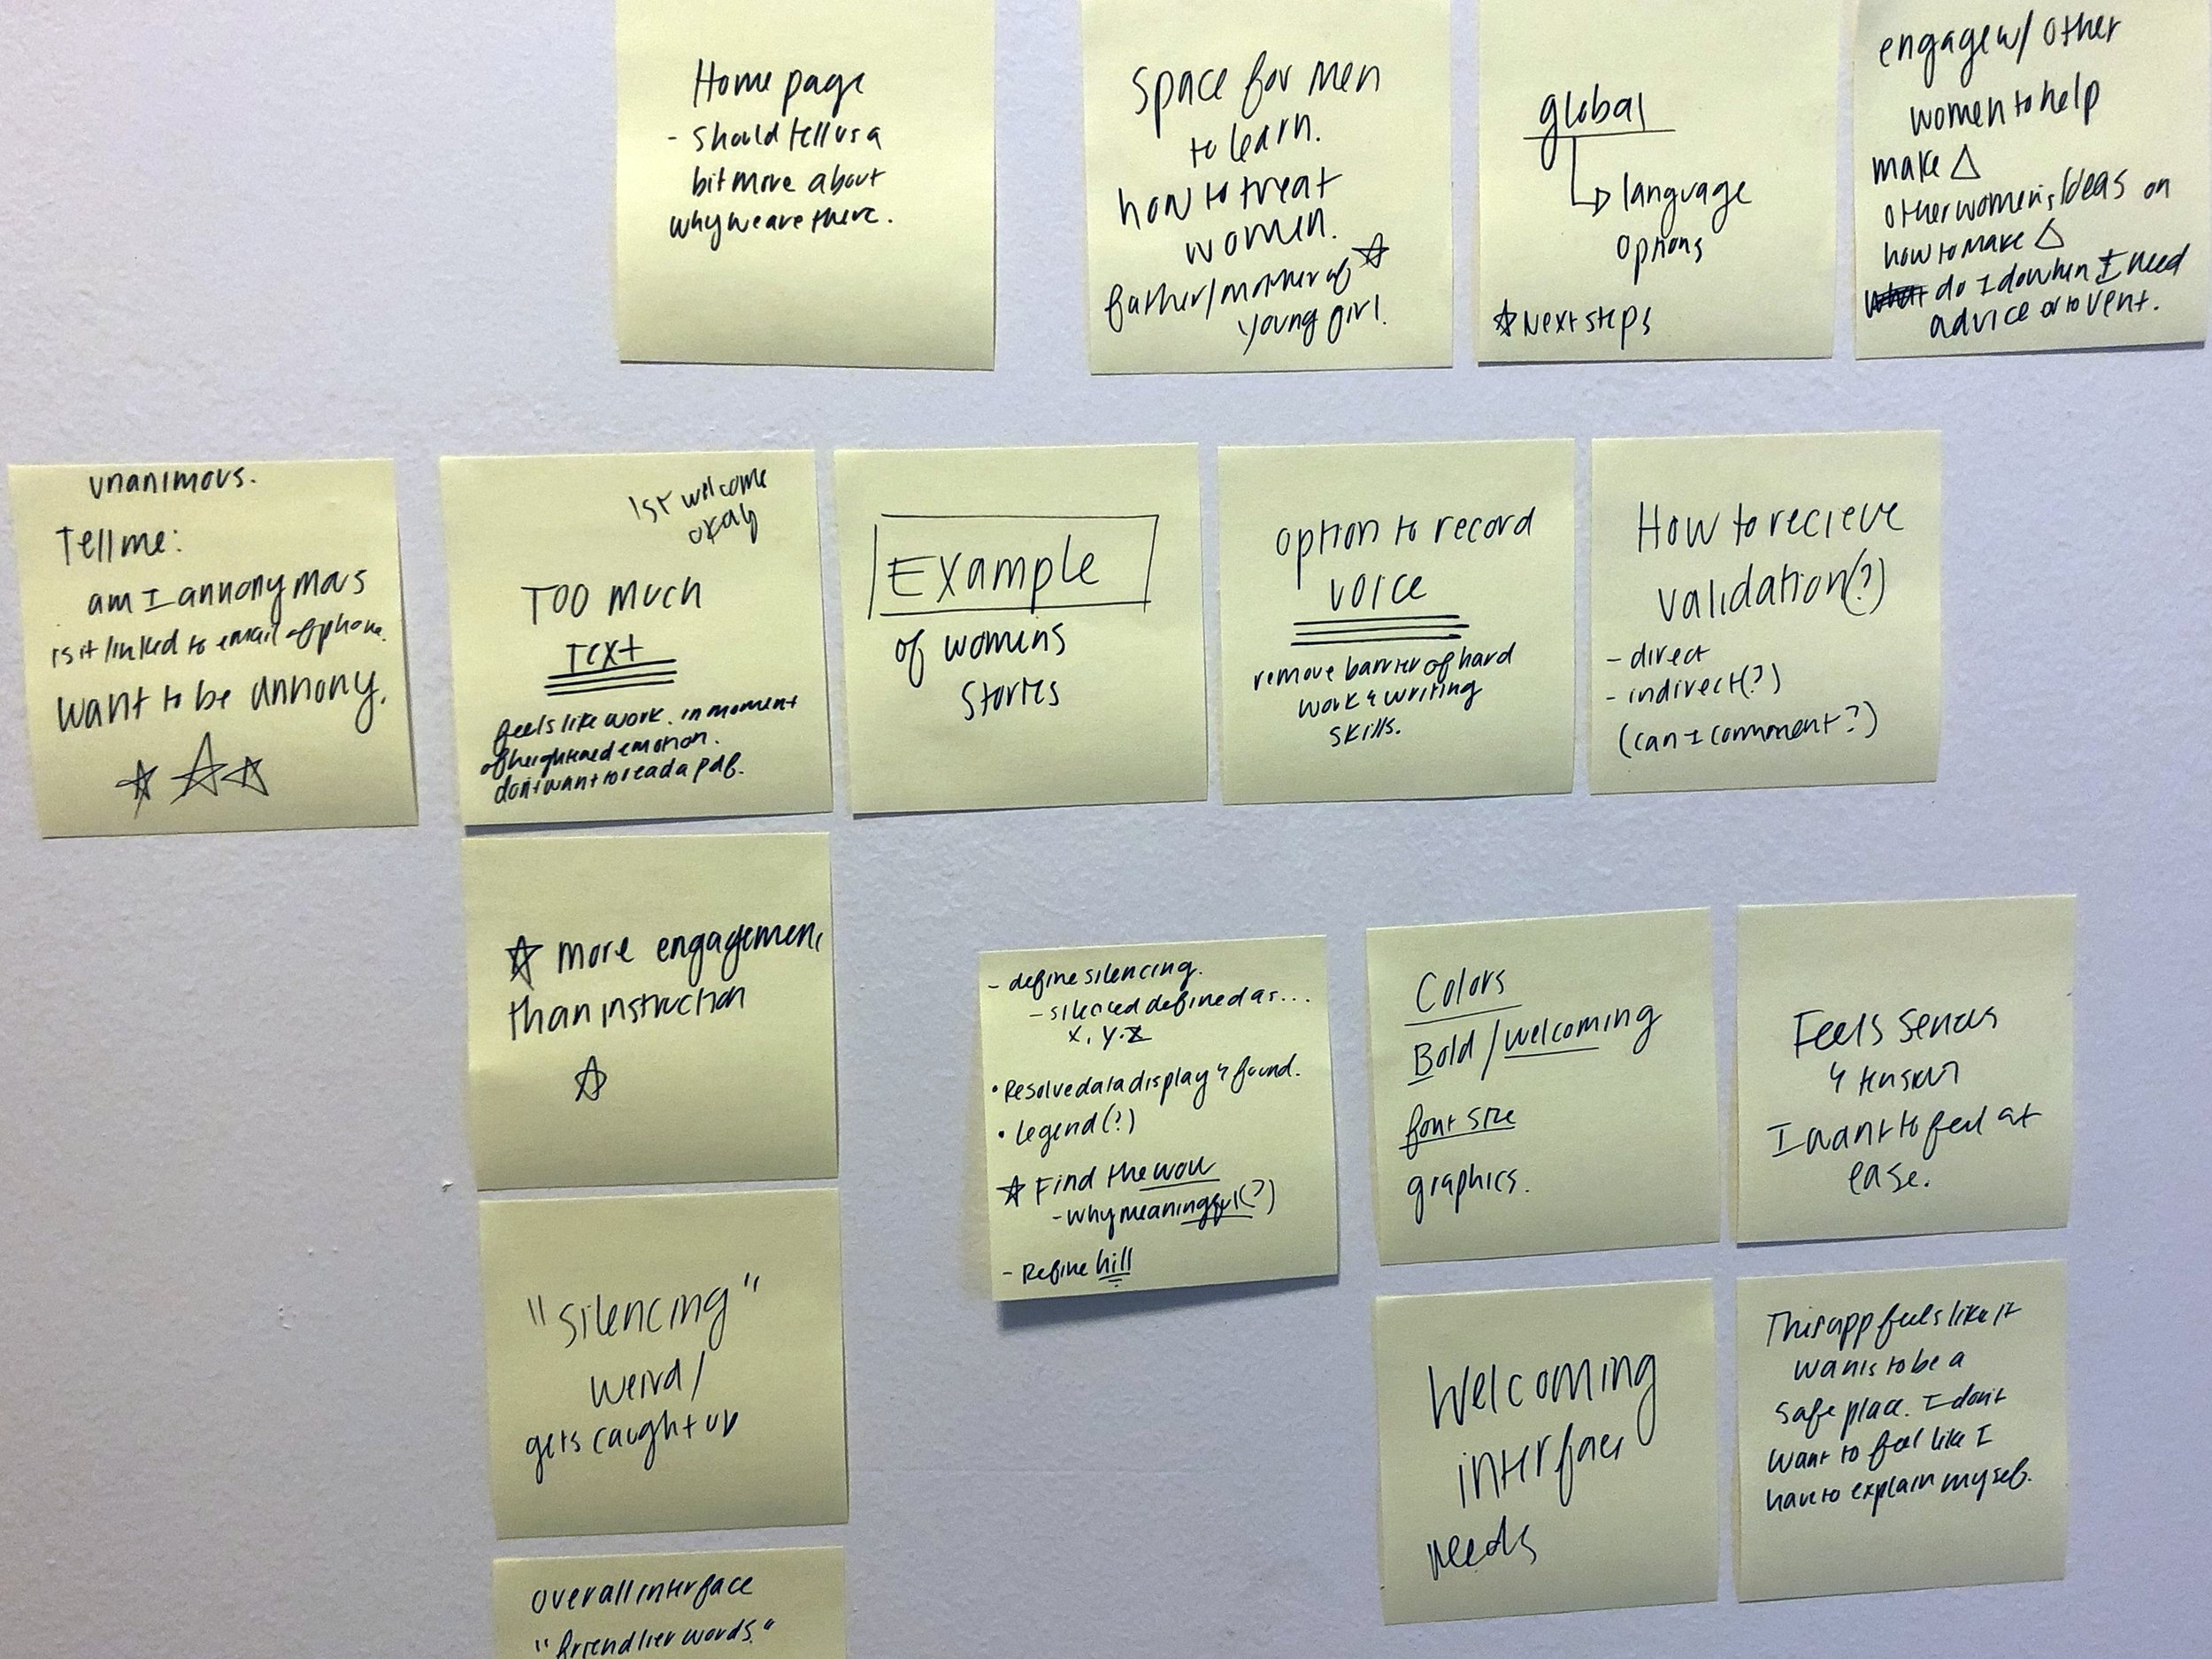 Home page
- should tell us a
bit more about
why we are there.
Space for men
to learn.
how to treat
women.
father/mother of ☆
young girl.
global
↳ language
options
☆ Next steps
engage w/ other
women to help
make △
other women's Ideas on
how to make △
do I do when I need
advice or to vent.
unanimous.
Tell me:
am I annonymous
is it linked to email of phone.
want to be annony.
☆ ☆ ☆
1st welcome
okay
TOO much
Text
feels like work. in moment
of heightened emotion.
don't want to read a pdf.
Example
of womens
stories
option to record
voice
remove barrier of hard
work & writing
skills.
How to recieve
validation(?)
- direct
- indirect(?)
(can I comment?)
☆ more engagement
than instruction
☆
- define silencing.
- silenced defined as...
x, y, z
• Resolve data display & found.
• Legend(?)
☆ Find the wow
- why meaningful(?)
- Refine hill
Colors
Bold / welcoming
font size
graphics.
Feels serious
&
I want to feel at
ease.
"silencing"
weird /
gets caught up
Welcoming
interface
needs
This app feels like it
wants to be a
safe place. I don't
want to feel like I
have to explain myself.
overall interface
"friendlier words."